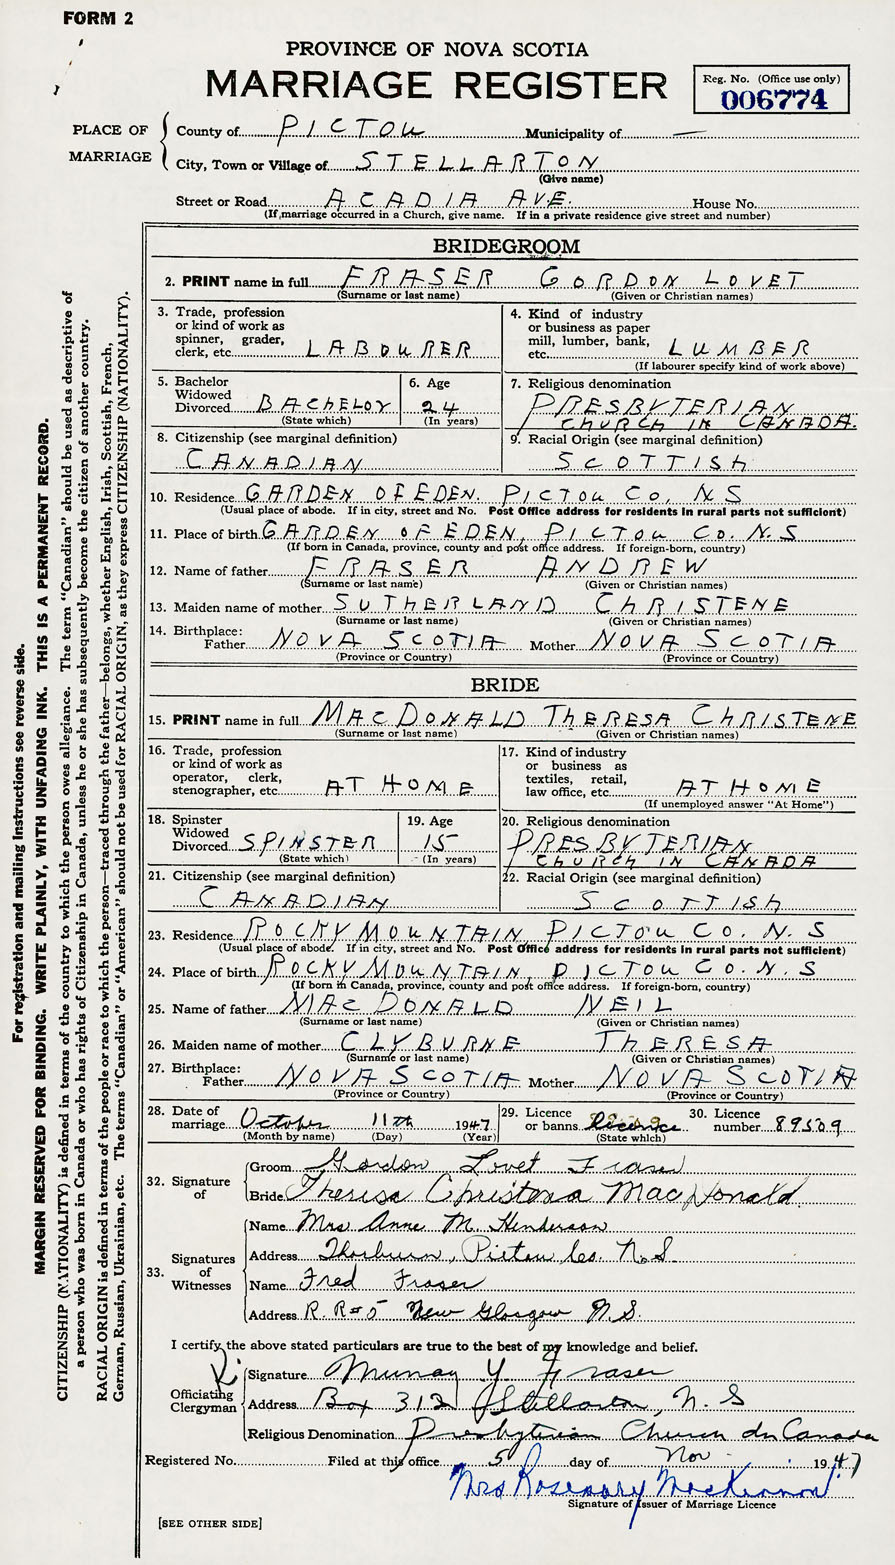 FORM 2
PROVINCE OF NOVA SCOTIA
MARRIAGE REGISTER
Reg. No. (Office use only)
006774
PLACE OF MARRIAGE
County of PICTOU Municipality of —
City, Town or Village of STELLARTON
(Give name)
Street or Road ACADIA AVE. House No.
(If marriage occurred in a Church, give name. If in a private residence give street and number)
BRIDEGROOM
2. PRINT name in full FRASER GORDON LOVET
(Surname or last name) (Given or Christian names)
3. Trade, profession
or kind of work as
spinner, grader,
clerk, etc. LABOURER
4. Kind of industry
or business as paper
mill, lumber, bank,
etc. LUMBER
(If labourer specify kind of work above)
5. Bachelor
Widowed
Divorced BACHELOR
(State which)
6. Age
24
(In years)
7. Religious denomination
PRESBYTERIAN
CHURCH IN CANADA.
8. Citizenship (see marginal definition)
CANADIAN
9. Racial Origin (see marginal definition)
SCOTTISH
10. Residence GARDEN OF EDEN. PICTOU CO, N.S
(Usual place of abode. If in city, street and No. Post Office address for residents in rural parts not sufficient)
11. Place of birth GARDEN OF EDEN, PICTOU CO. N.S
(If born in Canada, province, county and post office address. If foreign-born, country)
12. Name of father FRASER ANDREW
(Surname or last name) (Given or Christian names)
13. Maiden name of mother SUTHERLAND CHRISTENE
(Surname or last name) (Given or Christian names)
14. Birthplace:
Father NOVA SCOTIA Mother NOVA SCOTIA
(Province or Country) (Province or Country)
BRIDE
15. PRINT name in full MACDONALD THERESA CHRISTENE
(Surname or last name) (Given or Christian names)
16. Trade, profession
or kind of work as
operator, clerk,
stenographer, etc. AT HOME
17. Kind of industry
or business as
textiles, retail,
law office, etc. AT HOME
(If unemployed answer "At Home")
18. Spinster
Widowed
Divorced SPINSTER
(State which)
19. Age
15
(In years)
20. Religious denomination
PRESBYTERIAN
CHURCH IN CANADA
21. Citizenship (see marginal definition)
CANADIAN
22. Racial Origin (see marginal definition)
SCOTTISH
23. Residence ROCKY MOUNTAIN PICTOU CO. N.S
(Usual place of abode. If in city, street and No. Post Office address for residents in rural parts not sufficient)
24. Place of birth ROCKY MOUNTAIN, PICTOU CO. N.S
(If born in Canada, province, county and post office address. If foreign-born, country)
25. Name of father MACDONALD NEIL
(Surname or last name) (Given or Christian names)
26. Maiden name of mother CLYBURNE THERESA
(Surname or last name) (Given or Christian names)
27. Birthplace:
Father NOVA SCOTIA Mother NOVA SCOTIA
(Province or Country) (Province or Country)
28. Date of
marriage October 11th 1947
(Month by name) (Day) (Year)
29. Licence
or banns licence
(State which)
30. Licence
number 89509
32. Signature of
Groom Gordon Lovet Fraser
Bride Theresa Christena MacDonald
33. Signatures of Witnesses
Name Mrs Anne M. Henderson
Address Thorburn, Pictou Co. N.S.
Name Fred Fraser
Address R.R #5 New Glasgow N.S.
I certify the above stated particulars are true to the best of my knowledge and belief.
Officiating Clergyman
Signature Murray Y. Fraser
Address Box 312 Stellarton, N.S
Religious Denomination Presbyterian Church in Canada
Registered No. Filed at this office 5 day of Nov 1947
Mrs Rosemary MacKinnon
Signature of Issuer of Marriage Licence
[SEE OTHER SIDE]
For registration and mailing instructions see reverse side.
MARGIN RESERVED FOR BINDING. WRITE PLAINLY, WITH UNFADING INK. THIS IS A PERMANENT RECORD.
CITIZENSHIP (NATIONALITY) is defined in terms of the country to which the person owes allegiance. The term "Canadian" should be used as descriptive of
a person who was born in Canada or who has rights of Citizenship in Canada, unless he or she has subsequently become the citizen of another country.
RACIAL ORIGIN is defined in terms of the people or race to which the person—traced through the father—belongs, whether English, Irish, Scottish, French,
German, Russian, Ukrainian, etc. The terms "Canadian" or "American" should not be used for RACIAL ORIGIN, as they express CITIZENSHIP (NATIONALITY).